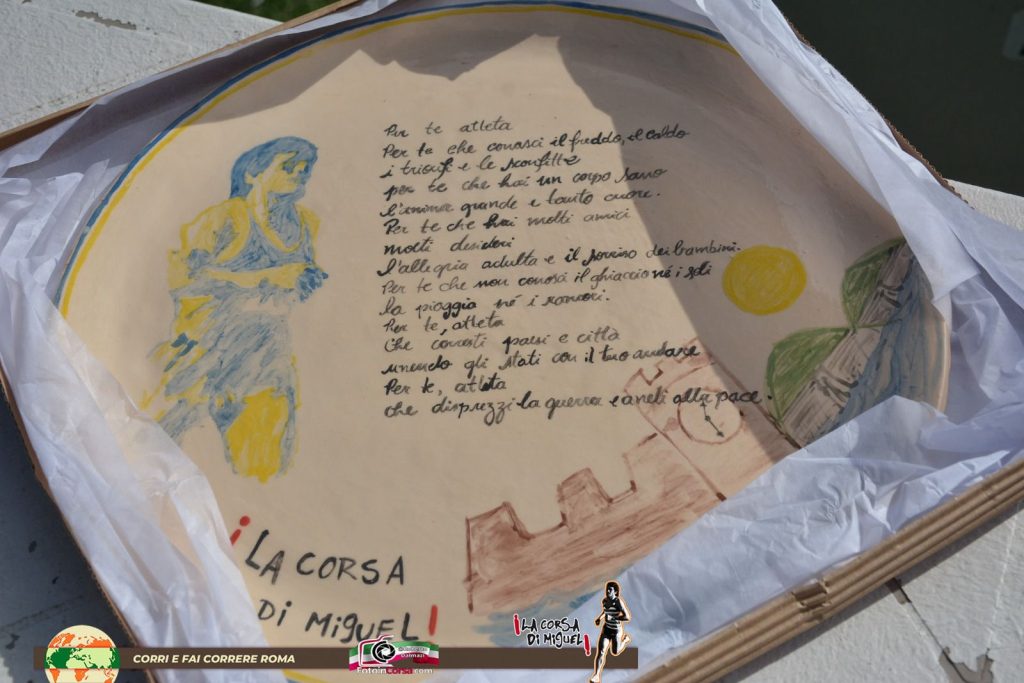 Per te atleta
Per te che conosci il freddo, il caldo
i trionfi e le sconfitte
per te che hai un corpo sano
l'anima grande e tanto cuore.
Per te che hai molti amici
molti desideri
l'allegria adulta e il sorriso dei bambini.
Per te che non conosci il ghiaccio né i soli
la pioggia né i rancori.
Per te, atleta
che corresti paesi e città
unendo gli stati con il tuo andare
Per te, atleta
che disprezzi la guerra e aneli alla pace.
¡LA CORSA
DI MIGUEL!
¡LA CORSA
DI MIGUEL!
CORRI E FAI CORRERE ROMA
FotoinCorsa.com